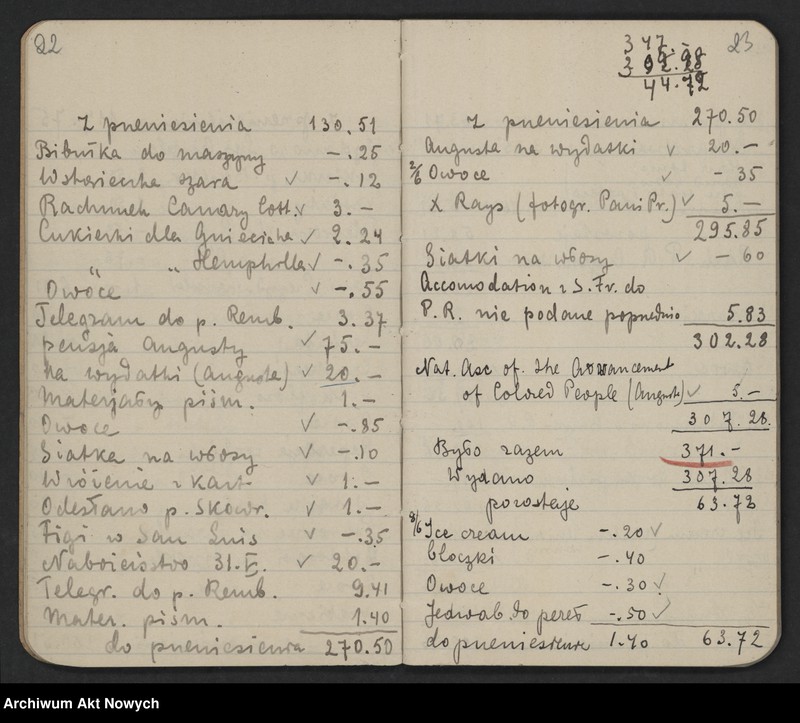 22
Z pneniesienia 130.51
Bibułka do maszyny -.25
Wstążeczka szara ✓ -.12
Rachunek Canary Cott. ✓ 3.-
Cukierki dla Gnieciaka ✓ 2.24
" " Hemphilla ✓ -.35
Owoce ✓ -.55
Telegram do p. Remb. 3.37
pensja Augusty ✓ 75.-
na wydatki (Augusta) ✓ 20.-
Materjały piśm. 1.-
Owoce ✓ -.85
Siatka na włosy ✓ -.10
Wróżenie z kart ✓ 1.-
Odesłano p. Skowr. ✓ 1.-
Figi w San Luis ✓ -.35
Nabożeństwo 31.V. ✓ 20.-
Telegr. do p. Remb. 9.41
Mater. piśm. 1.40
do pneniesienia 270.50
23
347.-
302.28
44.72
Z pneniesienia 270.50
Augusta na wydatki ✓ 20.-
2/6 Owoce ✓ - 35
X Rays (fotogr. Pani Pr.) ✓ 5.-
295.85
Siatki na włosy ✓ - 60
Accomodation z S. Fr. do
P. R. nie podane poprzednio 5.83
302.28
Nat. Asc of. the Advancement
of Colored People (August) ✓ 5.-
307.28.
Było razem 371.-
Wydano 307.28
pozostaje 63.72
8/6 Ice cream -.20 ✓
bloczki -.40
Owoce -.30 ✓
Jedwab. do pereł -.50 ✓
do pneniesienia 1.40 63.72
Archiwum Akt Nowych